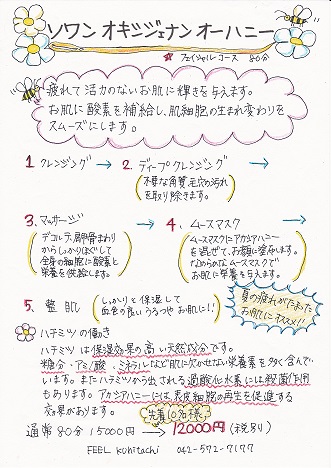 ソワン オキシジェナン オーハニー
★フェイシャルコース 80分
疲れて活力のないお肌に輝きを与えます。
お肌に酸素を補給し、肌細胞の生まれ変わりを
スムーズにします。
1 クレンジング → 2. ディープクレンジング →
(不要な角質、毛穴の汚れ
を取り除きます。)
3. マッサージ
(デコルテ、肩甲骨まわり
からしっかりほぐして
全身の細胞に酸素と
栄養を供給します。) →
4. ムースマスク
(ムースマスクにアカシアハニー
を混ぜて、お顔に塗布します。
なめらかなムースマスクで
お肌に栄養を与えます。) →
5. 整肌 (しっかりと保湿して
血色の良いうるつやお肌に!!)
夏の疲れがたまった
お肌にオススメ!!
ハチミツの働き
ハチミツは保湿効果の高い天然成分です。
糖分・アミノ酸、ミネラルなど肌に欠かせない栄養素を多く含んで
います。またハチミツから出される過酸化水素には殺菌作用
もあります。アカシアハニーには、表皮細胞の再生を促進する
効果があります。
先着10名様
通常 80分 15000円 → 12000円 (税別)
FEEL Kunitachi 042-572-7177